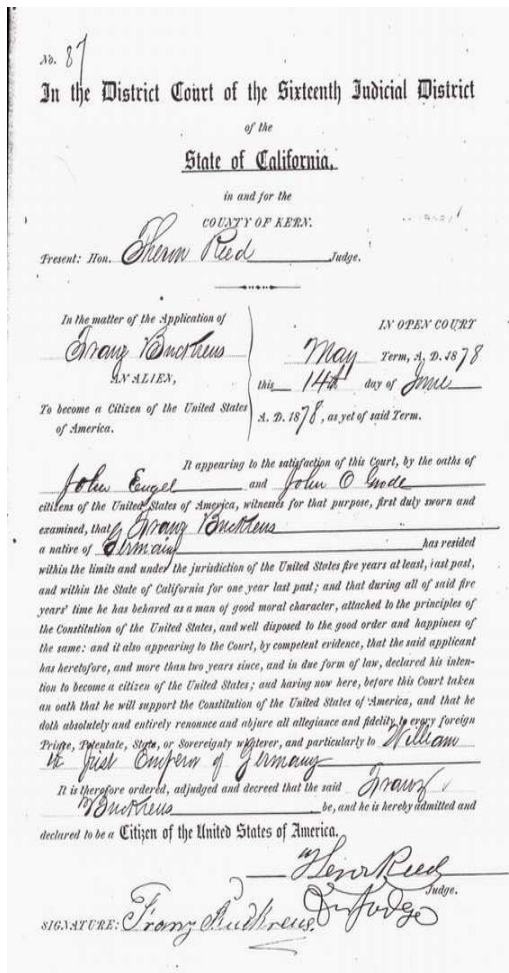 No. 87
In the District Court of the Sixteenth Judicial District
of the
State of California,
in and for the
COUNTY OF KERN.
Present: Hon. Theron Reed Judge.
In the matter of the Application of
Franz Buckreus
AN ALIEN,
To become a Citizen of the United States
of America.
IN OPEN COURT
May Term, A. D. 1878
this 14th day of June
A. D. 1878, as yet of said Term.
It appearing to the satisfaction of this Court, by the oaths of
John Engel and John O Gude
citizens of the United States of America, witnesses for that purpose, first duly sworn and
examined, that Franz Buckreus
a native of Germany has resided
within the limits and under the jurisdiction of the United States five years at least, last past,
and within the State of California for one year last past; and that during all of said five
years' time he has behaved as a man of good moral character, attached to the principles of
the Constitution of the United States, and well disposed to the good order and happiness of
the same: and it also appearing to the Court, by competent evidence, that the said applicant
has heretofore, and more than two years since, and in due form of law, declared his inten-
tion to become a citizen of the United States; and having now here, before this Court taken
an oath that he will support the Constitution of the United States of America, and that he
doth absolutely and entirely renounce and abjure all allegiance and fidelity to every foreign
Prince, Potentate, State, or Sovereignty whatever, and particularly to William
the first Emperor of Germany
It is therefore ordered, adjudged and decreed that the said Franz
Buckreus be, and he is hereby admitted and
declared to be a Citizen of the United States of America.
Theron Reed
Judge.
Dis Judge
SIGNATURE: Franz Buckreus.